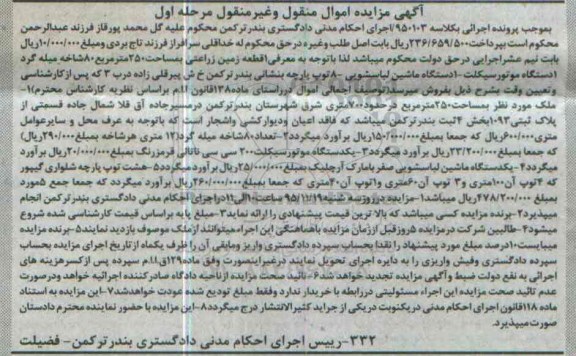 آگهی مزایده اموال منقول وغیرمنقول مرحله اول
بموجب پرونده اجرائی بکلاسه ۹۵۰۱۰۳/اجرای احکام مدنی دادگستری بندرترکمن محکوم علیه گل محمد پورقاز فرزند عبدالرحمن
محکوم است بپرداخت ۲۳۶/۶۵۹/۵۰۰ریال بابت اصل طلب وغیره درحق محکوم له خداقلی سرافراز فرزند تاج بردی ومبلغ ۱۰/۰۰۰/۰۰۰ریال
بابت نیم عشراجرایی درحق دولت محکوم میباشد لذا باتوجه به معرفی۱قطعه زمین زراعتی بمساحت۲۵۰مترمربع ۸۰شاخه میله گرد
۱دستگاه موتورسیکلت-۱دستگاه ماشین لباسشویی -۸توپ پارچه بنشانی بندرترکمن خ ش پیرقلی زاده درب ۳ که پس ازکارشناسی
وتعیین وقت بشرح ذیل بفروش میرسد(توصیف اجمالی اموال درراستای ماده۱۳۸قانون ا.ا.م براساس نظریه کارشناس محترم)۱-
ملک مورد نظر بمساحت۲۵۰مترمربع درحدود۷۰۰متری شرق شهرستان بندرترکمن درمسیرجاده آق قلا شمال جاده قسمتی از
پلاک ثبتی۱۰۹۳بخش ۴ثبت بندرترکمن میباشد که فاقد اعیان ودیوارکشی واشجار است که باتوجه به عرف محل و سایرعوامل
متری۶۰۰/۰۰۰ریال که جمعا بمبلغ۱۵۰/۰۰۰/۰۰۰ریال برآورد میگردد۲-تعداد۸۰شاخه میله گرد(۱۲ متری هرشاخه بمبلغ۲۹۰/۰۰۰ریال)
که جمعا بمبلغ۲۳/۲۰۰/۰۰۰ریال برآورد میگردد۳-یکدستگاه موتورسیکلت۲۰۰ سی سی تاتالی قرمزرنگ بمبلغ۲۰/۰۰۰/۰۰۰ریال برآورد
میگردد۴-یکدستگاه ماشین لباسشویی صفربامارک آرچلیک بمبلغ۲۵/۰۰۰/۰۰۰ریال برآورد میگردد۵-هشت توپ پارچه شلواری گیپور
که ۴توپ آن۱۰۰متری و۳ توپ آن۶۰متری و۱توپ آن۴۰متری که جمعا بمبلغ۲۶۰/۰۰۰/۰۰۰ریال برآورد میگردد که جمعا جمع ۵مورد
بمبلغ ۴۷۸/۲۰۰/۰۰۰ریال میباشد۱-مزایده درروزسه شنبه۹۵/۱۲/۱۹ساعت۱۰الی۱۱دراجرای احکام مدنی دادگستری بندرترکمن انجام
میپذیرد۲-برنده مزایده کسی میباشد که بالا ترین قیمت پیشنهادی را ارائه نماید۳-مبلغ پایه براساس قیمت کارشناسی شده شروع
میشود۴-طالبین شرکت درمزایده ۵روزقبل اززمان مزایده باهماهنگی این اجراء میتوانند ازملک موصوف بازدید نمایند۵-برنده مزایده
میبایست۱۰درصد مبلغ مورد پیشنهاد را نقدا بحساب سپرده دادگستری واریز ومابقی آن را ظرف یکماه ازتاریخ اجرای مزایده بحساب
سپرده دادگستری وفیش واریزی را به دایره اجرای تحویل نمایند درغیراینصورت وفق ماده۱۲۹ق.ا.م سپرده پس ازکسرهزینه های
اجرائی به نفع دولت ضبط وآگهی مزایده تجدید خواهد شد۶-تائید صحت مزایده ازناحیه دادگاه صادرکننده اجرائیه خواهد بودودرصورت
عدم تائید صحت مزایده این اجراء مسئولیتی دررابطه با خریدار ندارد وفقط مبلغ تودیع شده عودت خواهدشد۷-این مزایده به استناد
ماده ۱۱۸قانون اجرای احکام مدنی دریکنوبت دریکی از جراید کثیرالانتشار درج میگردد۸-این مزایده با حضور نماینده محترم دادستان
صورت میپذیرد.
۳۳۲-رییس اجرای احکام مدنی دادگستری بندرترکمن- فضیلت